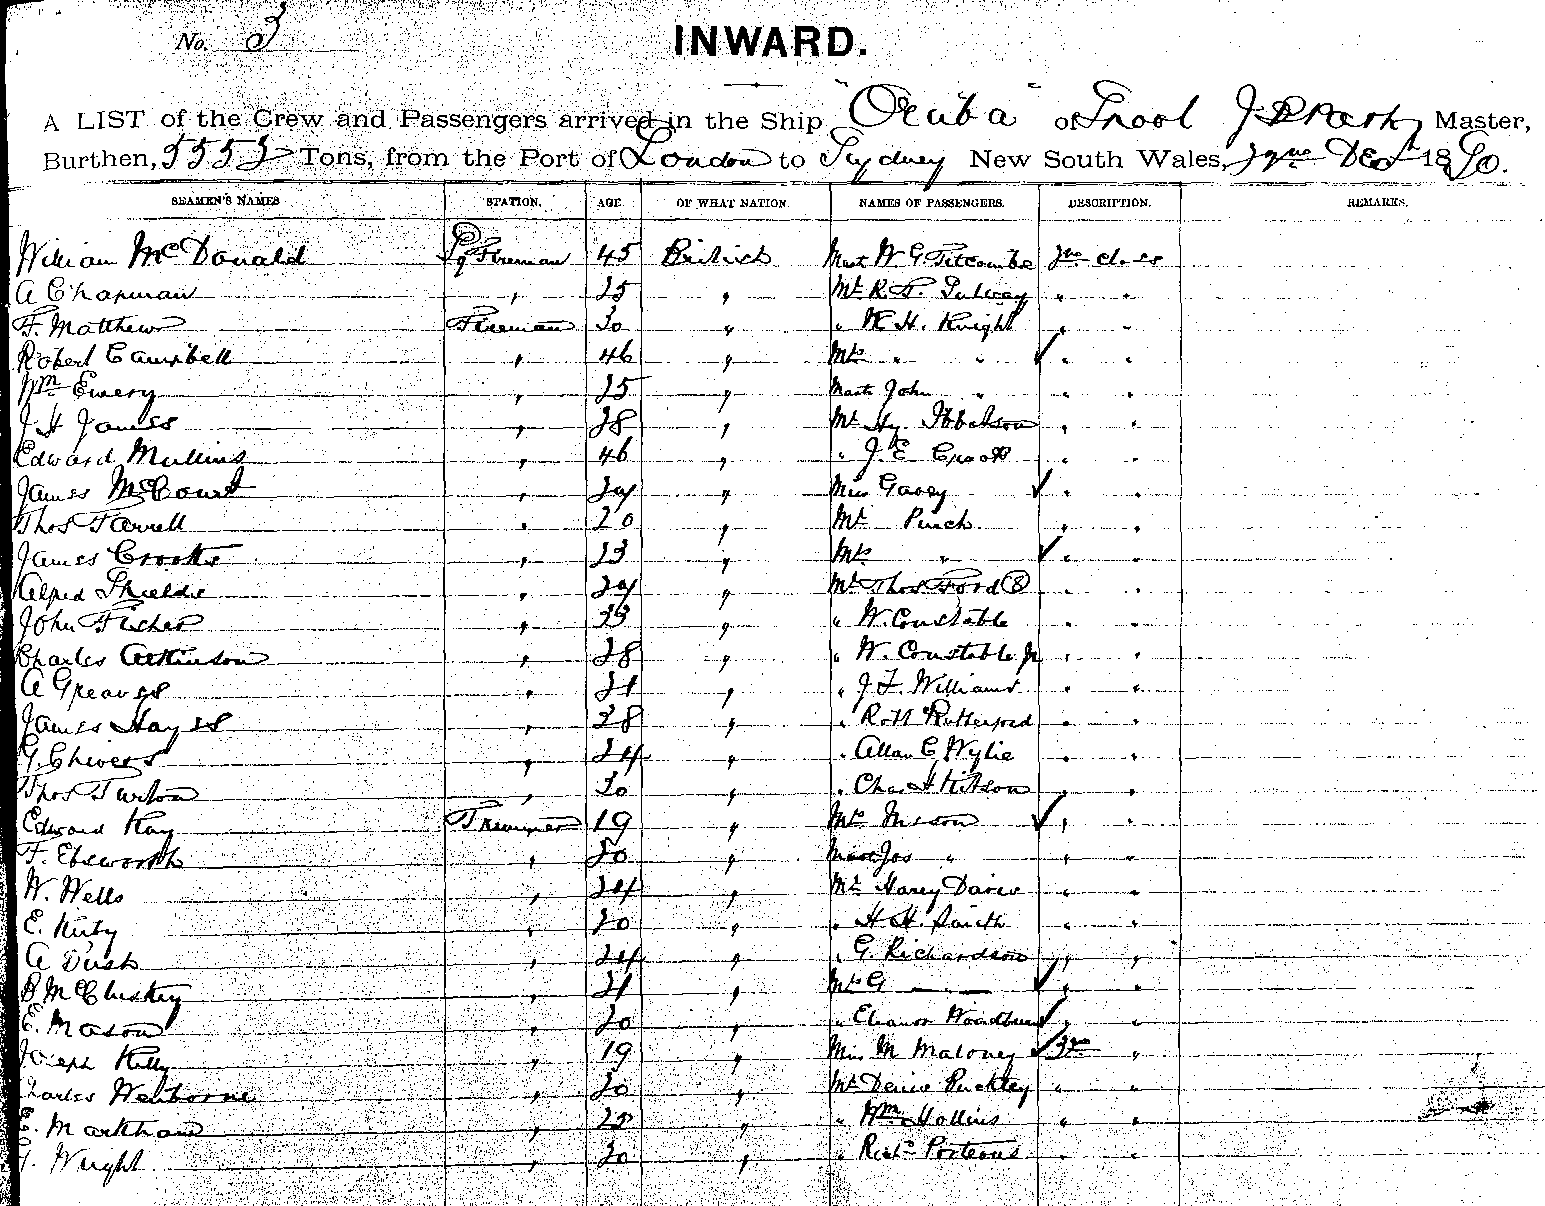 No. 3
INWARD.
A LIST of the Crew and Passengers arrived in the Ship "Oruba" of L'pool Master,
Burthen, 5552 Tons, from the Port of London to Sydney New South Wales, Dec 1890.
SEAMEN'S NAMES STATION. AGE OF WHAT NATION. NAMES OF PASSENGERS. DESCRIPTION. REMARKS.
William McDonald Fireman 45 British Mast W G Titcombe class
A Chapman " 25 " Mr R. " "
F. Matthews Fireman 30 " " W H. Knight " "
Robert Campbell " 46 " Mrs " " " "
Wm Emery " 25 " Mast John " " "
J H James " 28 " Mr Hy. Ibbotson " "
Edward Mullins " 46 " " J. E. Crook " "
James McCourt " " Miss Gavey " "
Thos Farrell " 20 " Mr Punch " "
James Crooks " 23 " Mrs " " "
Alfred Shields " " Mr Thos Ford " "
John Fisher " 33 " " W. Constable " "
Charles Atkinson " 28 " " W. Constable Jr " "
A Greaves " 21 " " J. F. Williams " "
James Hayes " 28 " " Robt Rutherford " "
G. Chivers " 24 " " Allan C Wylie " "
Thos Turton " 30 " " Chas H Kitson " "
Edward Kay Trimmer 19 " Mrs Mason " "
F. Ebsworth " 20 " Mast Jos " " "
W. Wells " 24 " Mr Harry Davis " "
E. Kirby " 20 " " H H. Smith " "
A Dush " 24 " " G. Richardson " "
McCluskey " 21 " Mrs G — — " "
E. Mason " 20 " " Eleanor " "
Joseph Kelly " 19 " Miss M Maloney "
Charles Wenborne " 20 " Mr Puckley " "
E. Markham " " " Wm Hollins " "
Wright " 20 " " Richd Porteous " "